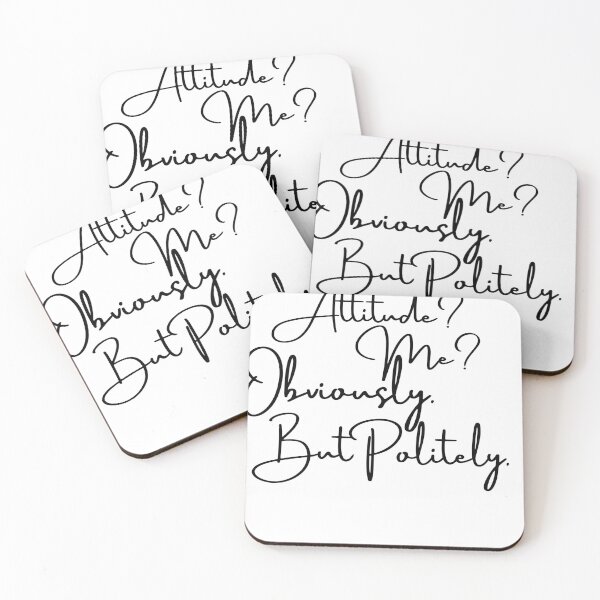 Attitude?
Me?
Obviously.
Attitude?
Me?
Obviously.
But Politely.
Attitude?
Me?
Obviously.
But Politely
Attitude?
Me?
Obviously.
But Politely.